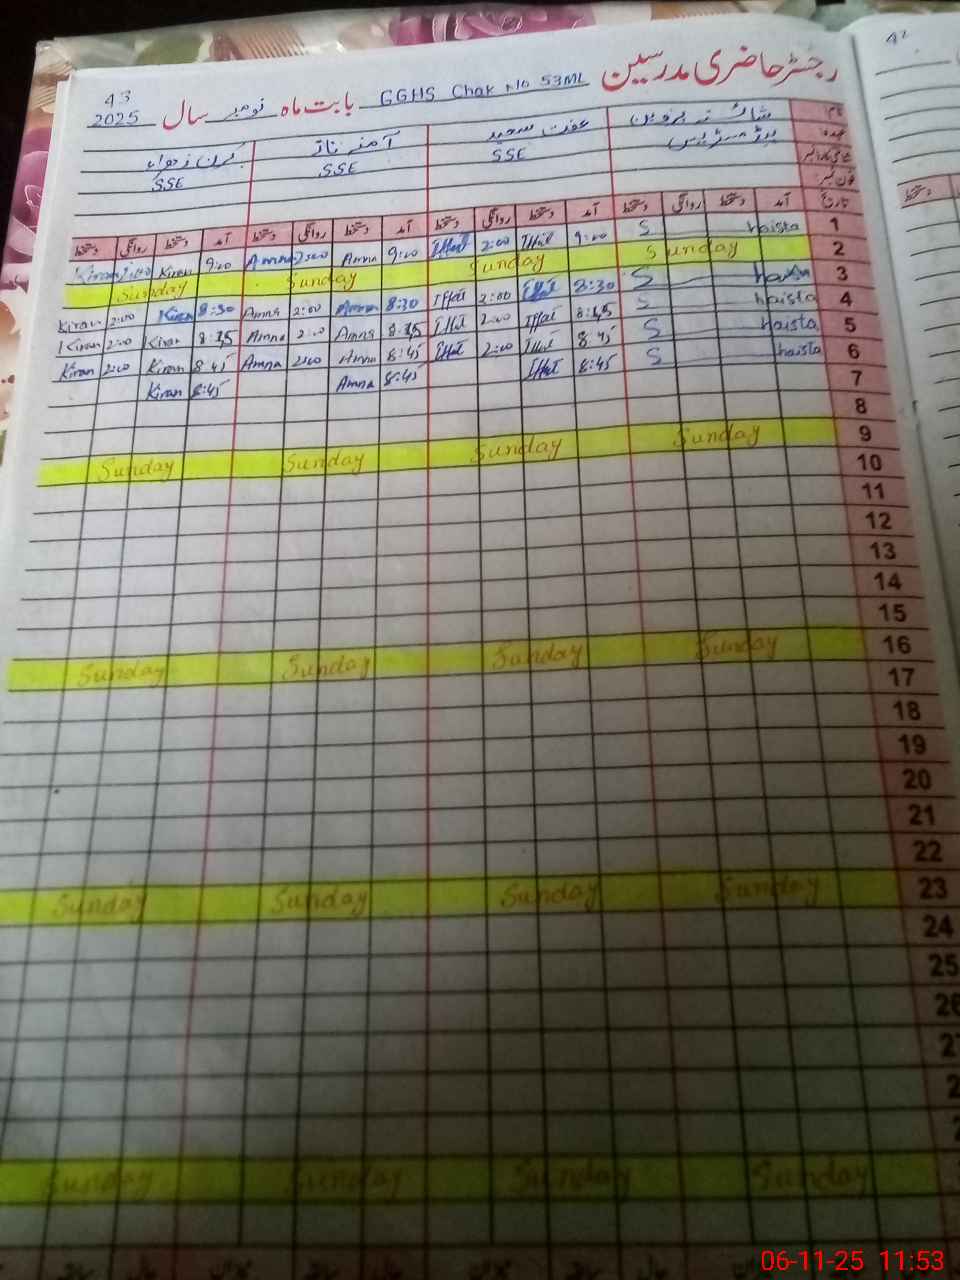 رجسٹر حاضری مدرسین GGHS Chak No 53ML بابت ماہ نومبر سال 2025
43
42
نام شائستہ پروین عفت سعید آمنہ ناز کرن زہراء
عہدہ ہیڈ مسٹریس SSE SSE SSE
شناختی کارڈ نمبر
فون نمبر
تاریخ آمد دستخط روانگی دستخط آمد دستخط روانگی دستخط آمد دستخط روانگی دستخط آمد دستخط روانگی دستخط
1 haista S 9:00 Iffat 2:00 Iffat 9:00 Amna 2:00 Amna 9:00 Kiran 2:00 Kiran
2 Sunday Sunday Sunday Sunday
3 S 8:30 Iffat 2:00 Iffat 8:30 Amna 2:00 Amna 8:30 Kiran 2:00 Kiran
4 haista S 8:15 Iffat 2:00 Iffat 8:15 Amna 2:00 Amna 8:15 Kiran 2:00 Kiran
5 haista S 8:45 Iffat 2:00 Iffat 8:45 Amna 2:00 Amna 8:45 Kiran 2:00 Kiran
6 haista S 8:45 Iffat 8:45 Amna 8:45 Kiran
7
8
9 Sunday Sunday Sunday Sunday
10
11
12
13
14
15
16 Sunday Sunday Sunday Sunday
17
18
19
20
21
22
23 Sunday Sunday Sunday Sunday
24
25
26
Sunday Sunday Sunday Sunday
06-11-25 11:53